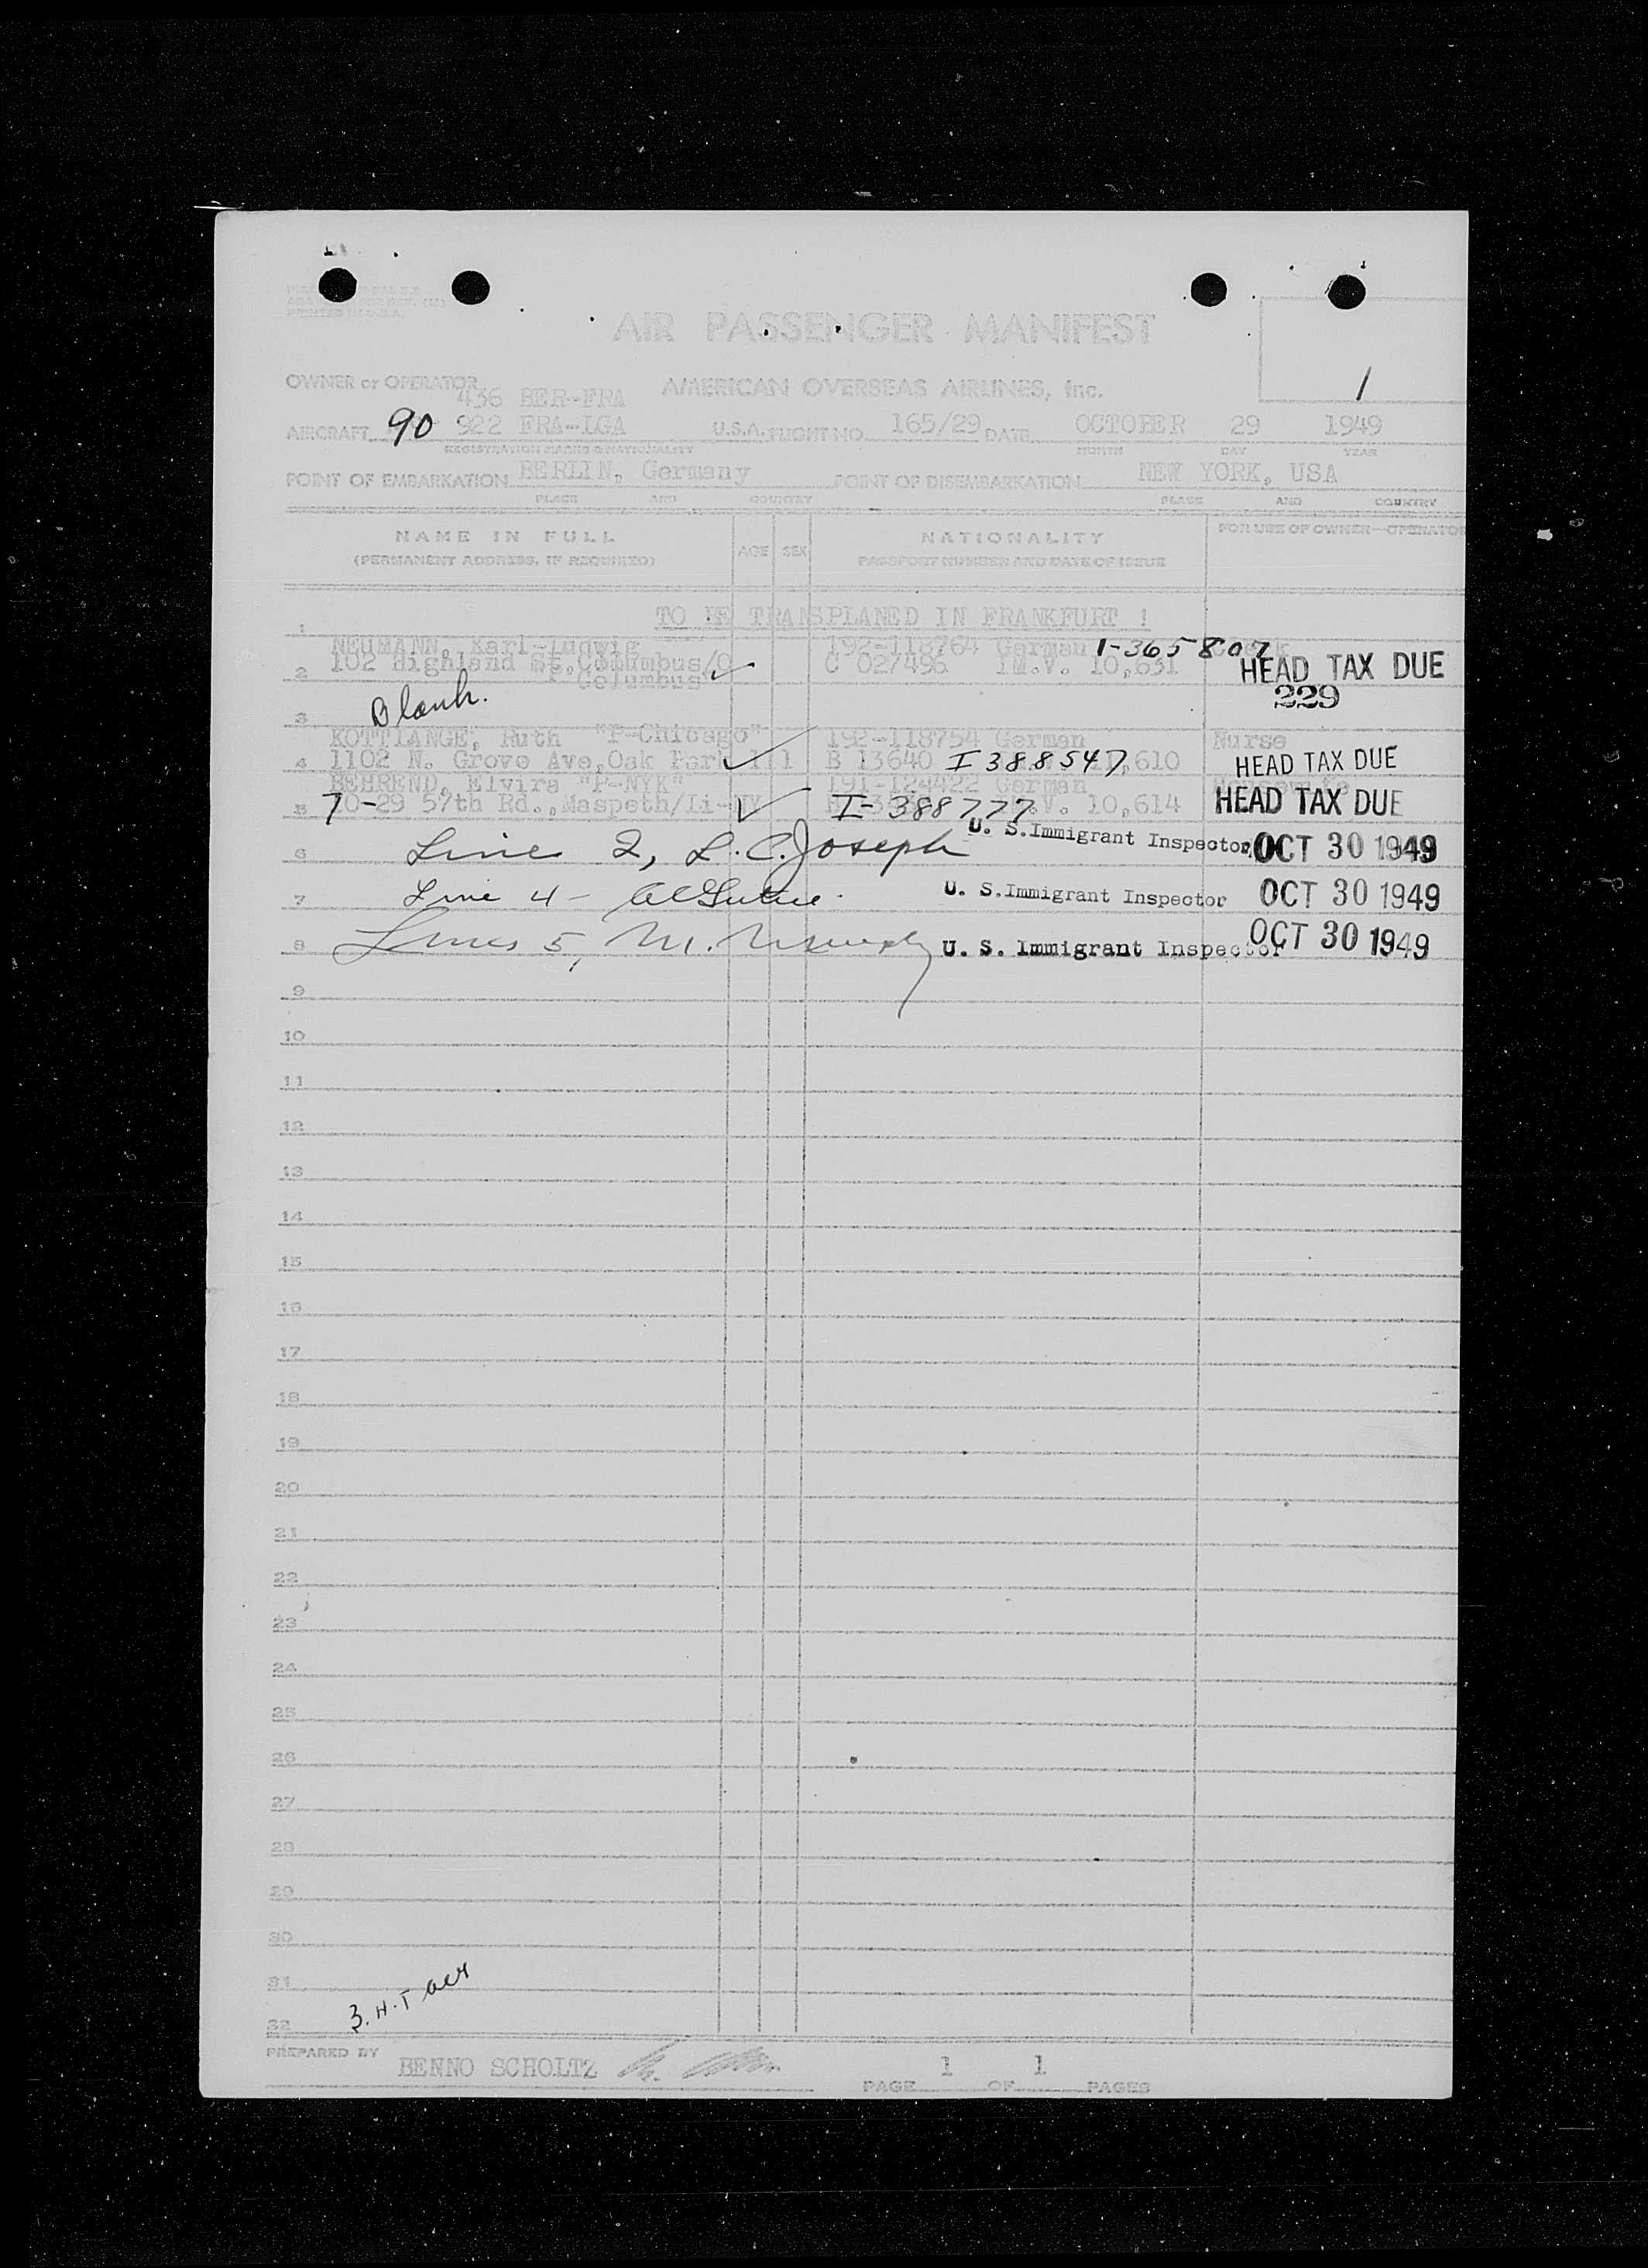 PRINTED IN U.S.A.
AIR PASSENGER MANIFEST
OWNER or OPERATOR AMERICAN OVERSEAS AIRLINES, Inc.
436 BER-FRA
1
AIRCRAFT 90 922 FRA-LGA U.S.A. FLIGHT NO. 165/29 DATE OCTOBER 29 1949
REGISTRATION MARKS & NATIONALITY MONTH DAY YEAR
POINT OF EMBARKATION BERLIN, Germany POINT OF DISEMBARKATION NEW YORK, USA
PLACE AND COUNTRY PLACE AND COUNTRY
NAME IN FULL AGE SEX NATIONALITY FOR USE OF OWNER—OPERATOR
(PERMANENT ADDRESS, IF REQUIRED) PASSPORT NUMBER AND DATE OF ISSUE
1 TO BE TRANSPLANED IN FRANKFURT !
NEUMANN, Karl-Ludwig 192-118764 German 1-365807
2 102 Highland St, Columbus/O C 027496 IM.V. 10,631 HEAD TAX DUE
"Columbus"
229
3 Blank.
KOTTLANGE, Ruth "P-Chicago" 192-118754 German Nurse
4 1102 N. Grove Ave, Oak Park Ill B 13640 I 388547 ,610 HEAD TAX DUE
BEHREND, Elvira "P-NYK" 191-124422 German
5 70-29 57th Rd., Maspeth/Li-NY I-388777 .V. 10,614 HEAD TAX DUE
6 Line 2, L. C. Joseph U. S. Immigrant Inspector OCT 30 1949
7 Line 4 - U. S. Immigrant Inspector OCT 30 1949
8 Lines 5, M. U. S. Immigrant Inspector OCT 30 1949
9
10
11
12
13
14
15
16
17
18
19
20
21
22
23
24
25
26
27
28
29
30
31
3. H.T
32
PREPARED BY BENNO SCHOLTZ PAGE 1 OF 1 PAGES